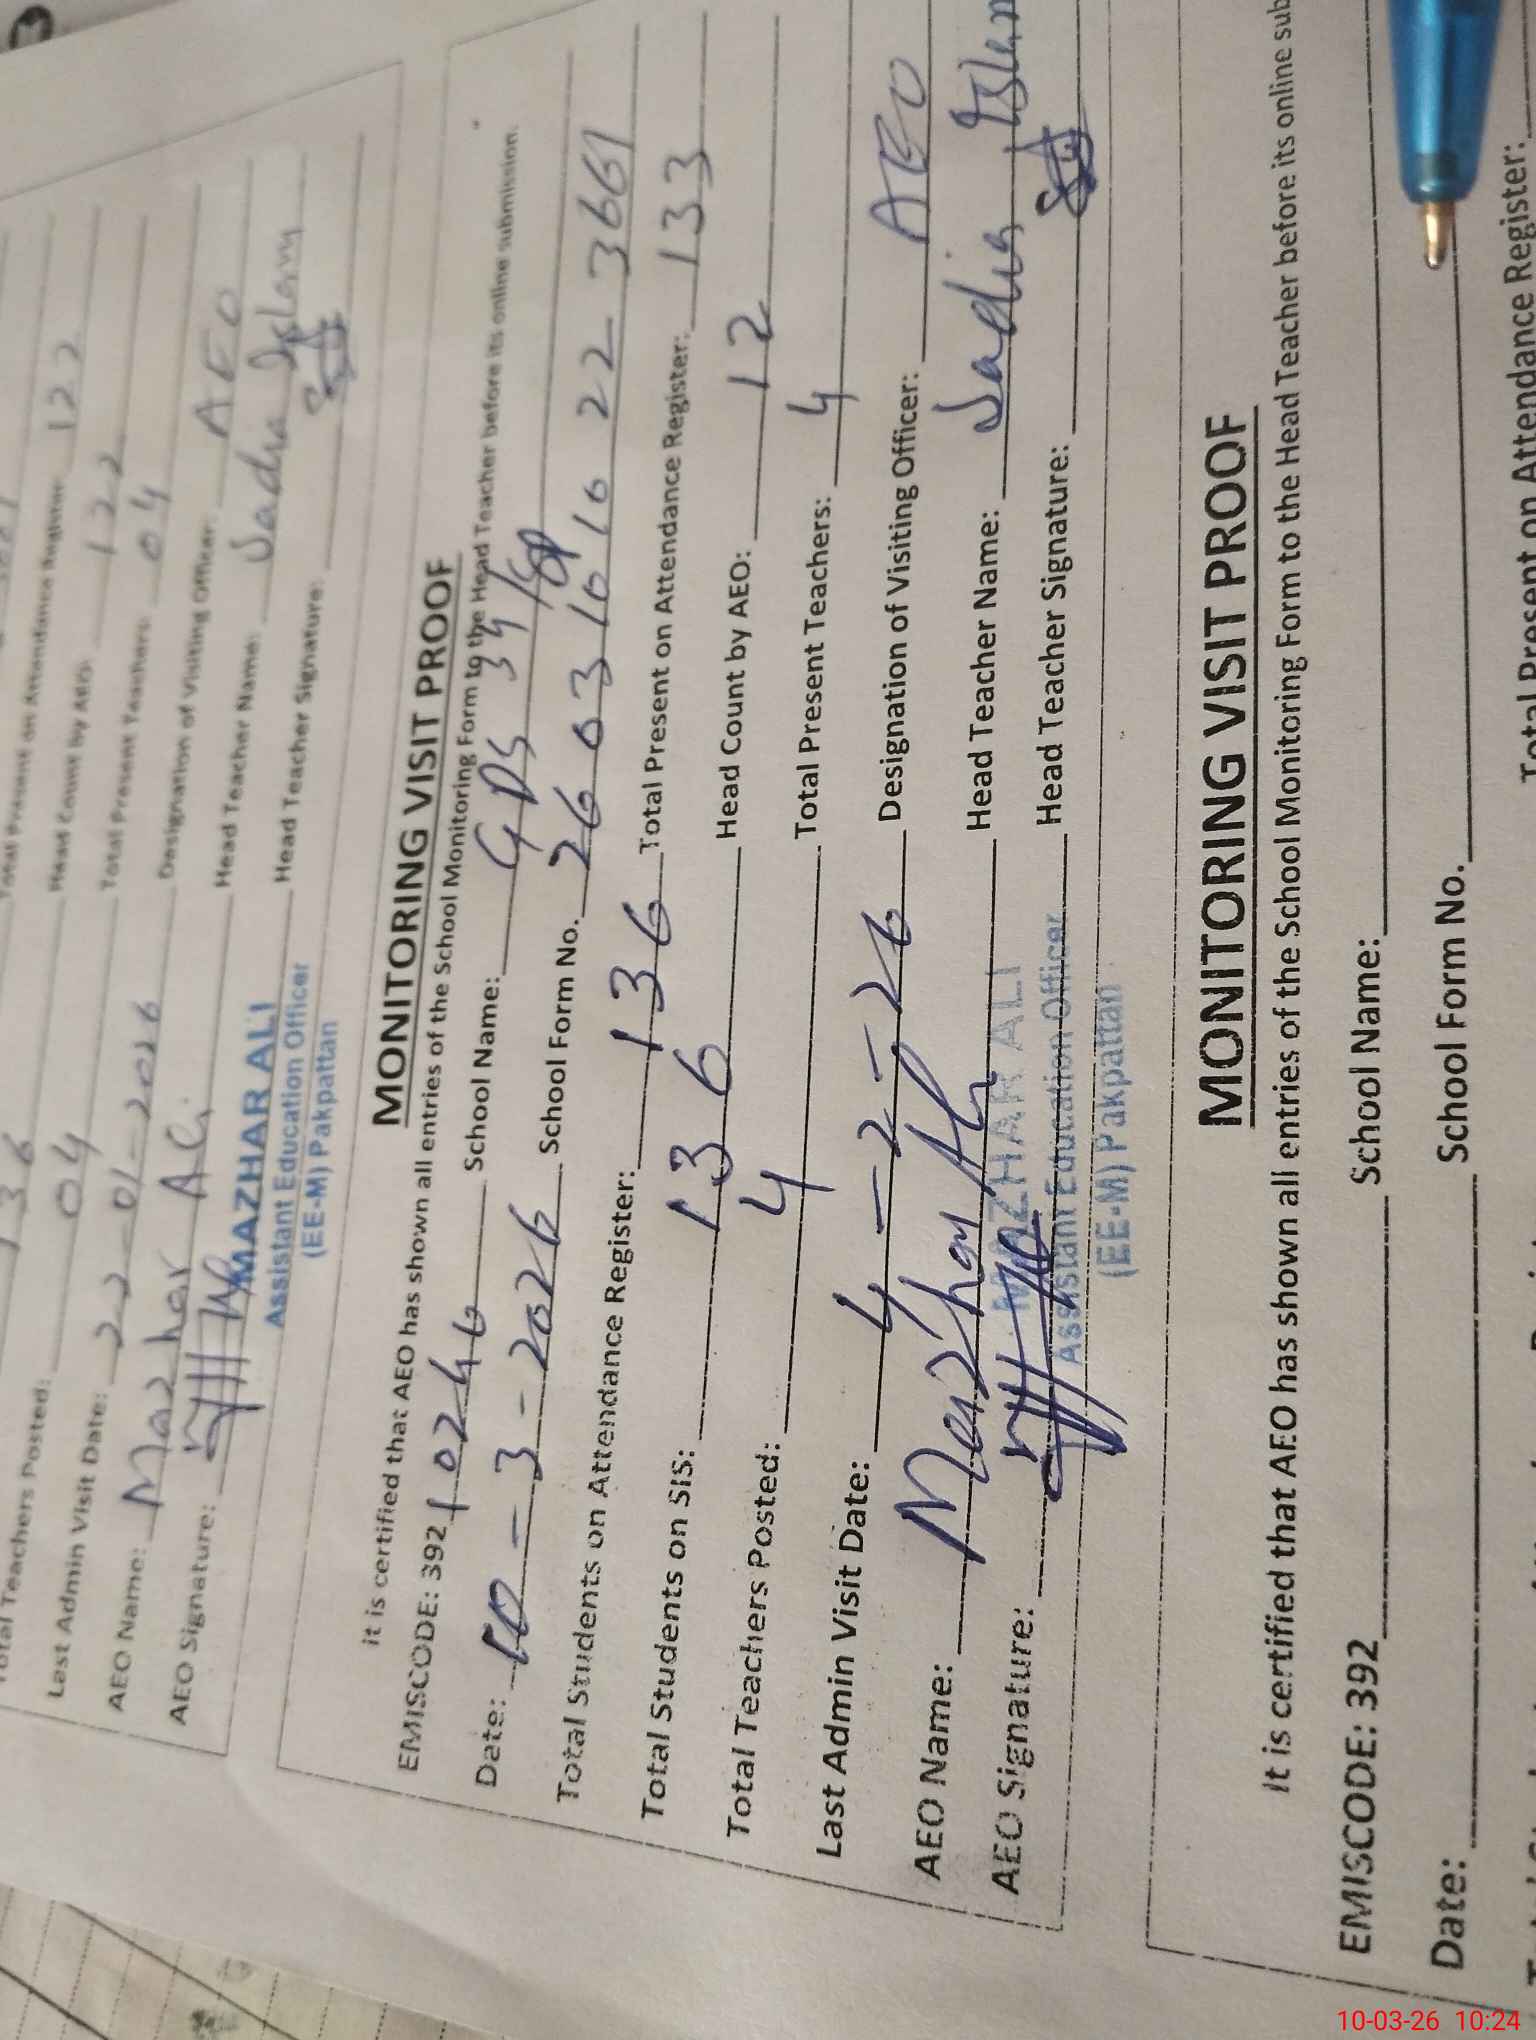 Total Present on Attendance Register: 122
136 Head Count by AEO: 122
Total Teachers Posted: 04 Total Present Teachers: 04
Last Admin Visit Date: 22-01-2026 Designation of Visiting Officer: AEO
AEO Name: Mazhar Ali Head Teacher Name: Sadia Islam
AEO Signature: Head Teacher Signature:
MAZHAR ALI
Assistant Education Officer
(EE-M) Pakpattan
MONITORING VISIT PROOF
it is certified that AEO has shown all entries of the School Monitoring Form to the Head Teacher before its online submission.
EMISCODE: 392 10246 School Name: GPS 34/SP
Date: 10-3-2026 School Form No. 26 03 10 10 22 3661
Total Students on Attendance Register: 136 Total Present on Attendance Register: 133
Total Students on SIS: 136 Head Count by AEO: 12
Total Teachers Posted: 4 Total Present Teachers: 4
Last Admin Visit Date: 4-2-26 Designation of Visiting Officer: AEO
AEO Name: Mazhar Ali Head Teacher Name: Sadia Islam
AEO Signature: Head Teacher Signature:
MAZHAR ALI
Assistant Education Officer
(EE-M) Pakpattan
MONITORING VISIT PROOF
It is certified that AEO has shown all entries of the School Monitoring Form to the Head Teacher before its online sub
EMISCODE: 392 School Name:
Date: School Form No.
Total Present on Attendance Register:
10-03-26 10:24